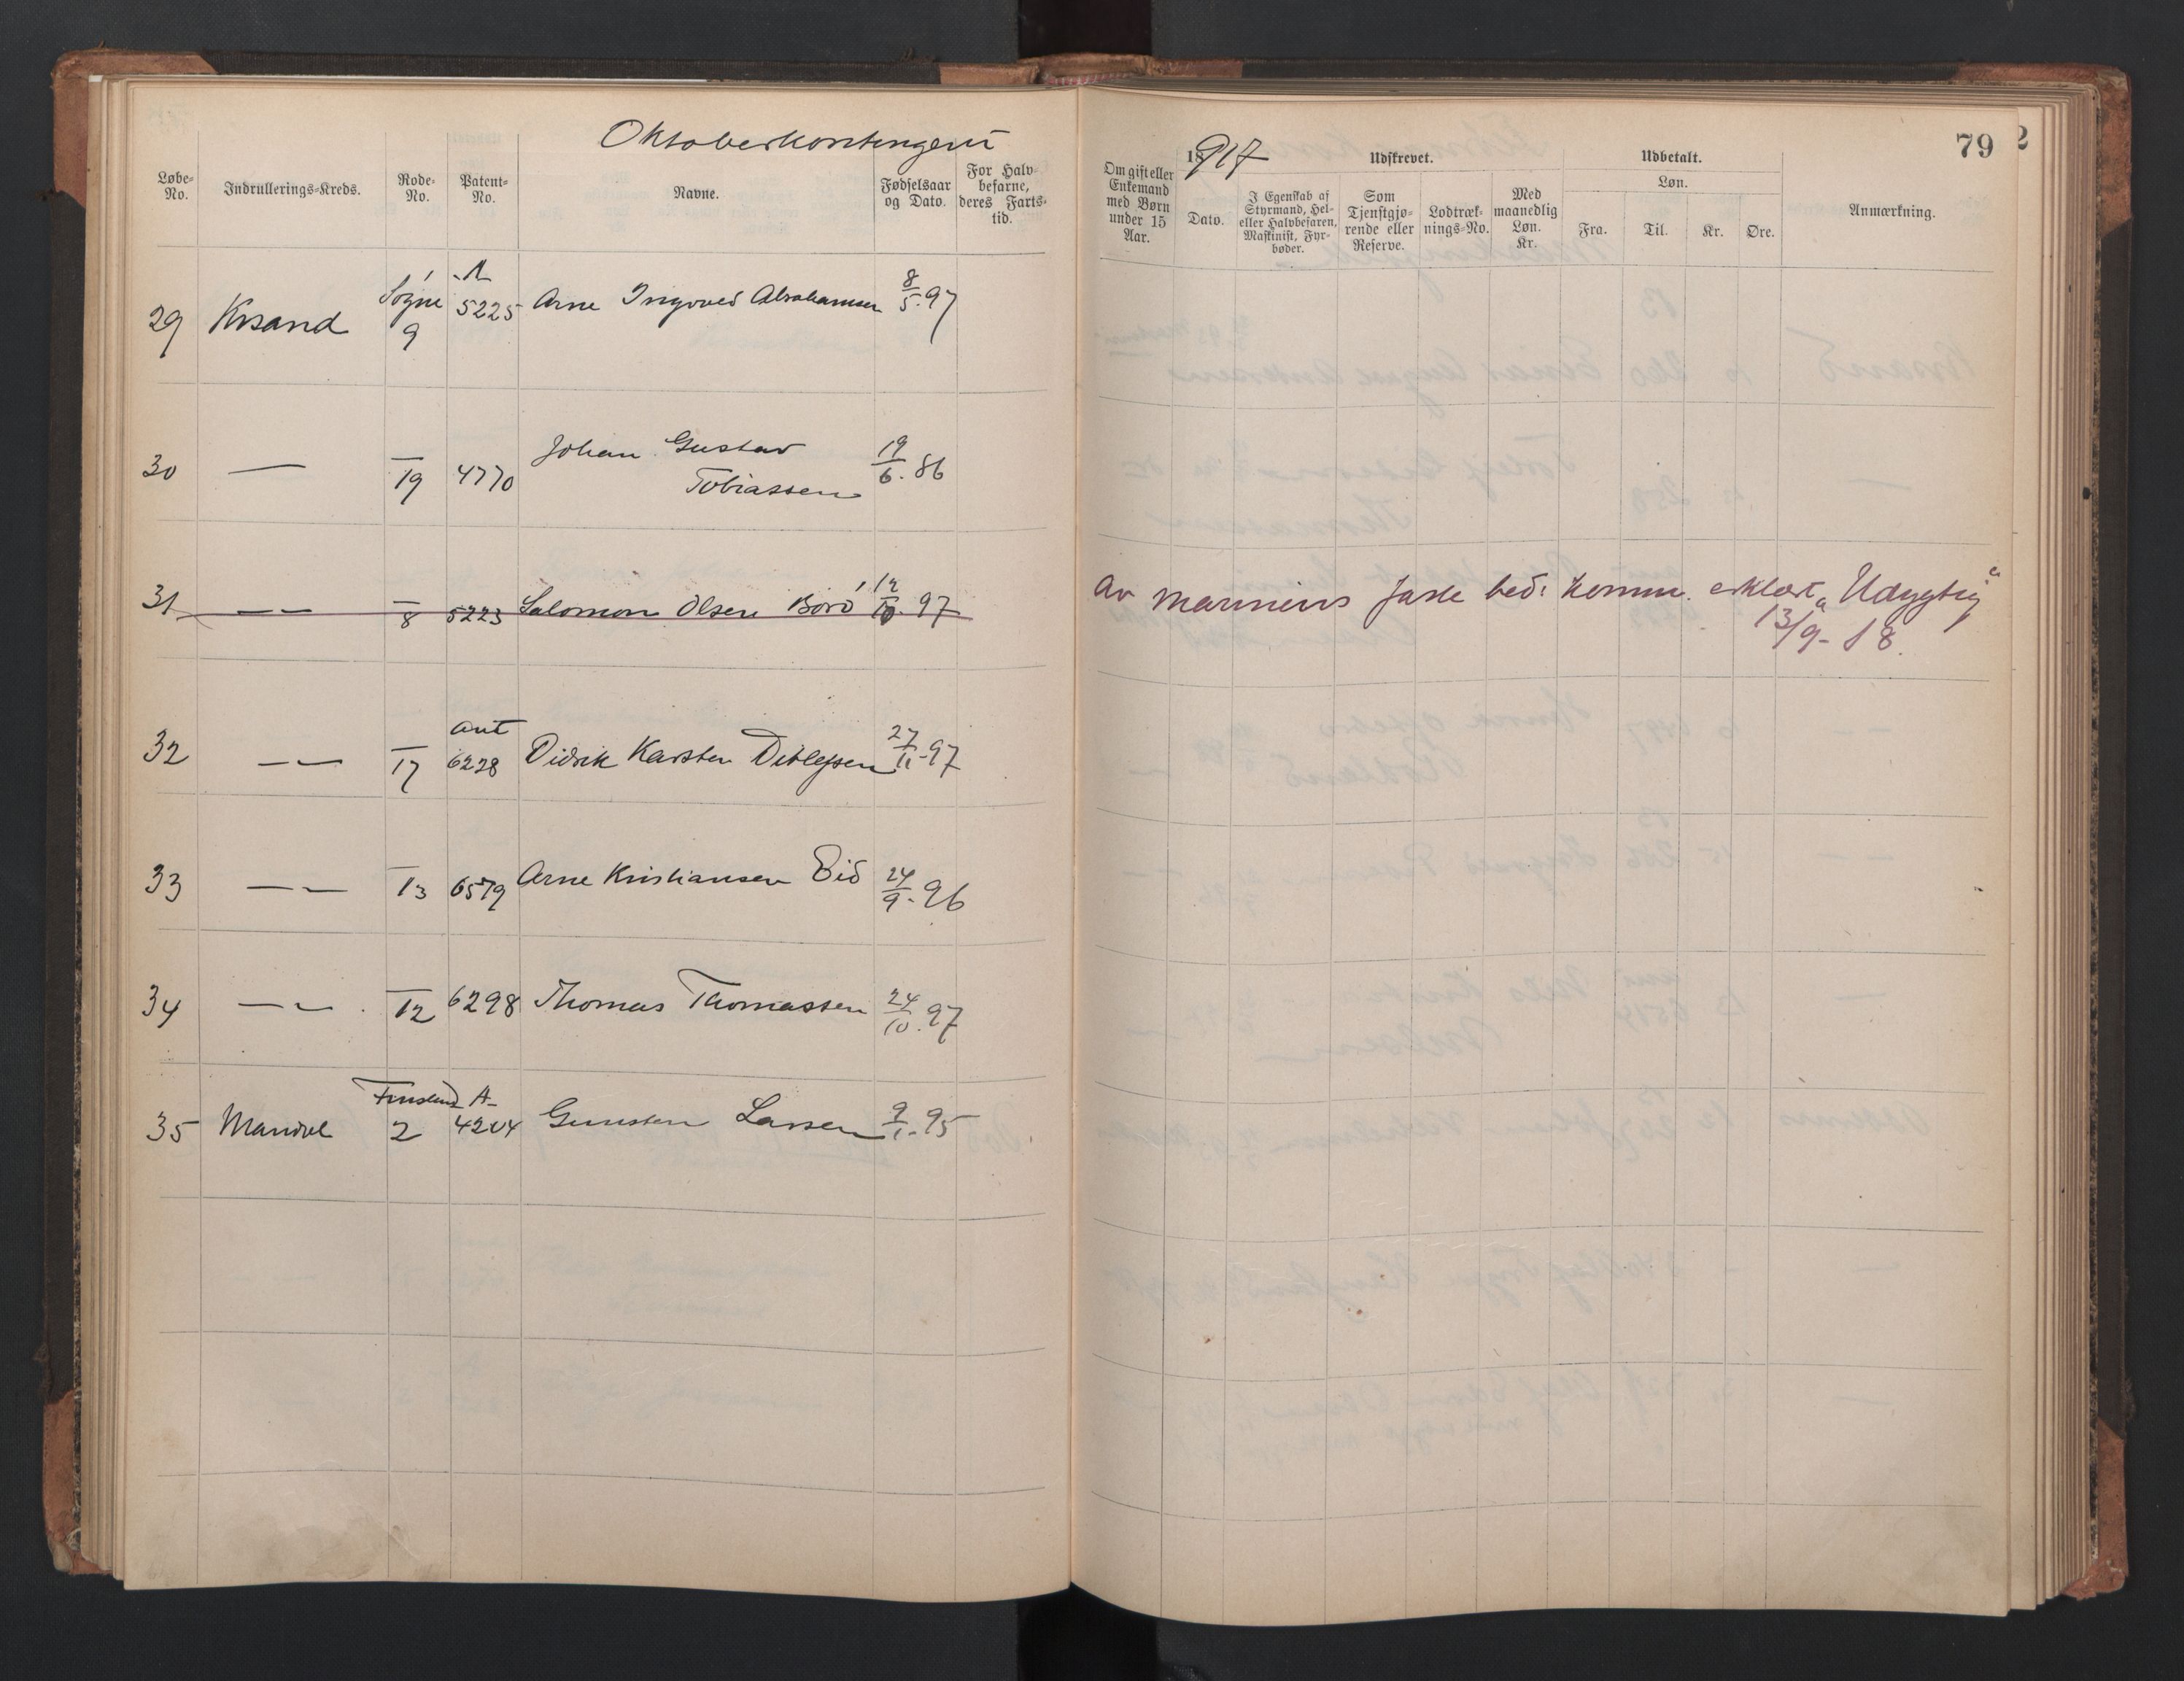 Oktoberkontingent
Løbe-No. Indrullerings-Kreds. Rode-No. Patent-No. Navne. Fødselsaar og Dato. For Halvbefarne, deres Fartstid.
29 Krsand Søgne 9 A 5225 Arne Ingvald Abrahamsen 8/5.97
30 — — 19 4770 Johan Gustav
Tobiassen 19/6.86
31 — — 8 5223 Salomon Olsen Borø 12/10.97
32 — — 17 ant 6228 Didrik Karsten Ditlefsen 27/11-97
33 — — 13 6579 Arne Kristiansen Eid 24/9-96
34 — — 12 6298 Thomas Thomassen 24/10.97
35 Mandal Finsland 2 A 4204 Gunsten Larsen 9/1-95
79
Om gift eller Enkemand med Børn under 15 Aar. 18917 Dato. Udskrevet. I Egenskab af Styrmand, Hel- eller Halvbefaren, Maskinist, Fyrbøder. Som Tjenstgjørende eller Reserve. Lodtræknings-No. Med maanedlig Løn. Kr. Udbetalt. Løn. Fra. Til. Kr. Øre. Anmærkning.
Av marinens faste bed. komm. erklært "Udygtig"
13/9-18.
2